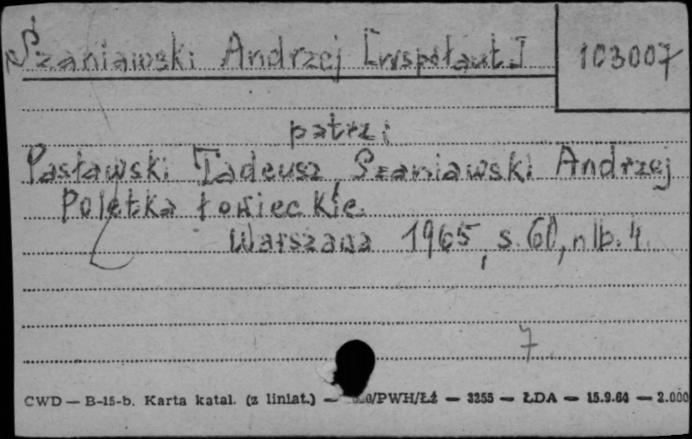 Szaniawski Andrzej [współaut.]
103007
patrz:
Pasławski Tadeusz, Szaniawski Andrzej
Poletka łowieckie.
Warszawa 1965, s. 60, nlb. 4.
7
CWD — B-15-b. Karta katal. (z liniat.) — /PWH/Łź — 3255 — ŁDA — 15.9.64 — 2.000